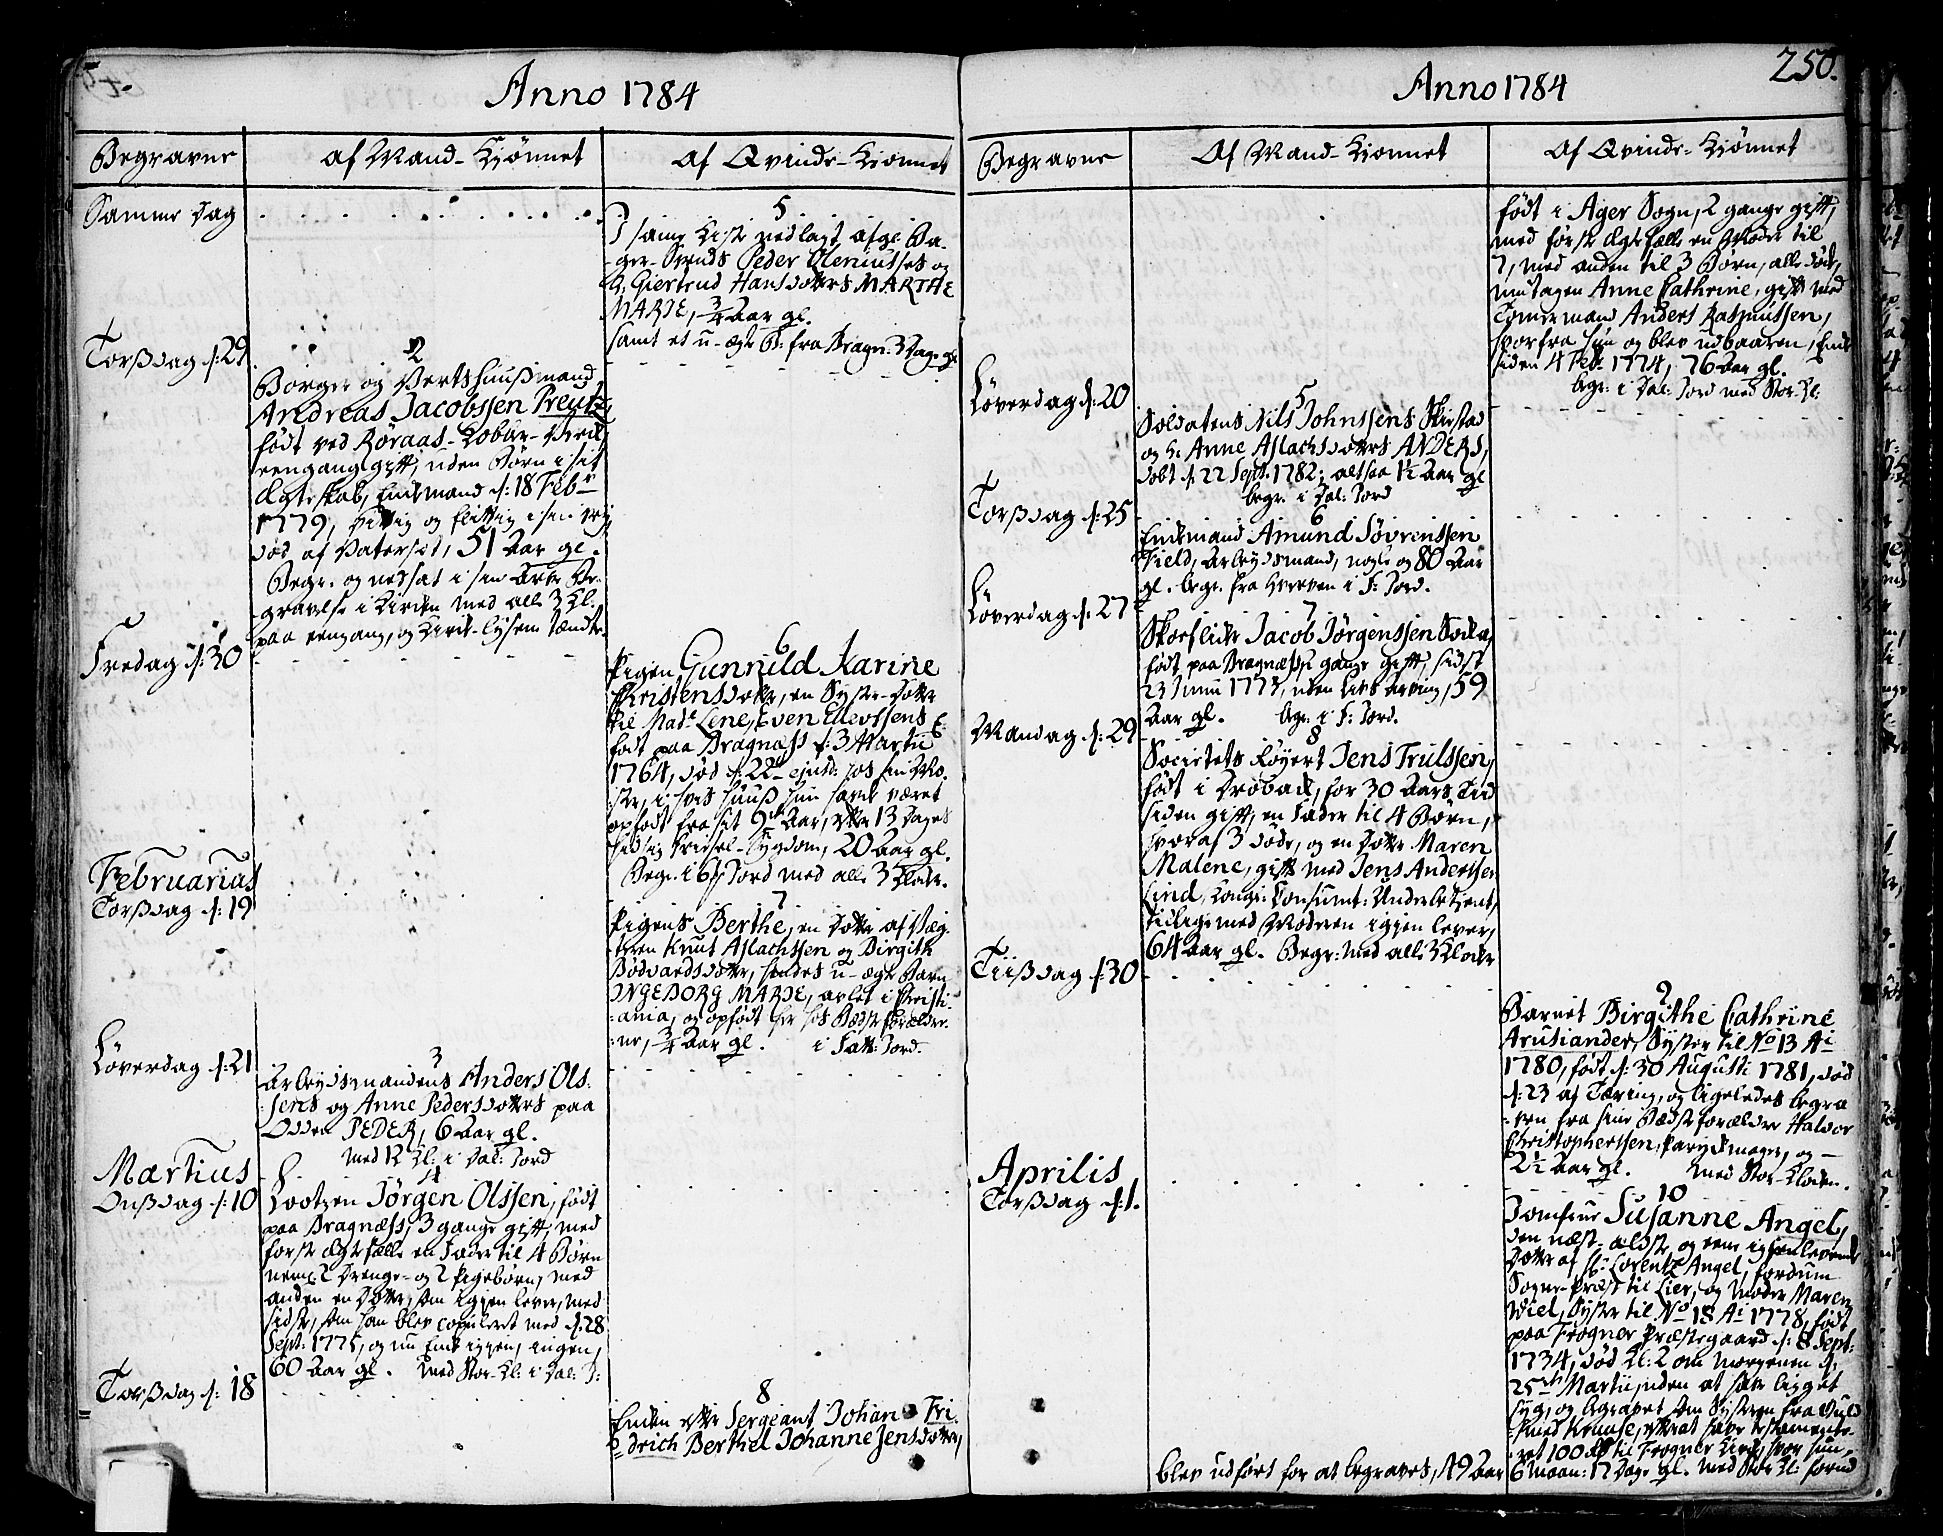 Anno 1784
Begravne
af Mand-Kjønnet
af Qvinde-Kjønnet
Samme Dag
5
I samme Kiste nedlagt afg. Ba-
ger-Svends Peder Oleniusses og
H. Giertrud Hansdotters MARTHE
MARIE, 3/4 Aar gl.
samt et u-ægte B. fra Bragn: 3 Dage gl
Torsdag d: 29
2
Borger og Vertshuusmand
Andreas Jacobssen Preutz,
født ved Røraas-Kobber-Verk,
eengang gift, uden Børn i sit
Ægteskab, Enkemand d: 18 Febr
1779, og flittig i sin
død af Vatersot, 51 Aar gl.
Begr. og nedsat i sin Arve Be-
gravelse i Kirken med alle 3 Kl.
paa eengang, og Kirke-Lysene tændte
Fredag d: 30
6
Pigen Gunnild Karine
Christensdotter, en Syster-Dotter
til Mad: Lene, Even Ellevssens E.
født paa Bragnæss d: 3 Martii
1764, død d: 22 ejusd: hos sin Mo-
ster, i hvis Huus hun havde været
opfødt fra sit 9de Aar, efter 13 Dages
Sygdom, 20 Aar gl.
Begr. i 6 Jord med alle 3 Klokr.
Februarius
Torsdag d: 19
7
Pigens Berthe, en Dotter af Væg-
teren Knut Aslachssen og Birgith
Bødvardsdotter, hendes u-ægte Barn
INGEBORG MARIE, avlet i Christi-
ania, og opfødt her hos Bedsteforældre-
ne, 3/4 Aar gl. i Fatt: Jord.
Løverdag d: 21
3
Arbeydsmandens Anders Ols-
sens og Anne Pedersdotters paa
Odden PEDER, 6 Aar gl.
med 12 Kl: i Dal: Jord
Martius
Onsdag d: 10
4
Lootzen Jørgen Olssen, født
paa Bragnæss, 3 gange gift, med
første Ægtefælle en Fader til 4 Børn
neml: 2 Drenge- og 2 Pigebørn, med
anden en Dotter, som igjen lever, med
sidste, som han blev copuleret med d: 28
Sept: 1775, og nu Enke igjen, ingen,
60 Aar gl. med Stor-Kl: i Dal: J:
Torsdag d: 18
8
Enken efter Sergeant Johan Fri-
drich Berthel Johanne Jensdotter,
Anno 1784
250.
Begravne
Af Mand-Kjønnet
Af Qvinde-Kjønnet
født i Ager Sogn, 2 gange gift,
med første Ægtefælle en Moder til
7, med anden til 3 Børn, alle døde,
undtagen Anne Cathrine, gift med
Tømermand Anders Rasmussen,
hvorfra hun og blev udbaaren, Enke
siden 4 Feb. 1774, 76 Aar gl.
begr: i Dal: Jord med Stor-Kl:
Løverdag d: 20
5
Soldatens Nils Johnssens Skirstad
og H. Anne Aslachsdotters ANDERS,
døbt d. 22 Sept. 1782, altsaa 1½ Aar gl
begr. i Dal: Jord
Torsdag d: 25
6
Enkemand Amund Søvrenssen
Field, Arbeydsmand, nogle og 80 Aar
gl. begr. fra i F: Jord.
Løverdag d: 27
7
Skoeflicker Jacob Jørgenssen
født paa Bragnæss, 2 gange gift, sidst
23 Junii 1773, uden Livs Arving, 59
Aar gl. begr. i F: Jord.
Mandag d: 29
8
Societets Røgert Jens Trulssen,
født i Drøbach, for 30 Aars Tid
siden gift, en Fader til 4 Børn,
hvoraf 3 døde, og en Dotter Maren
Malene, gift med Jens Anderssen
Lind, Kongl: Consumt: Underbetjent,
tillige med Moderen igjen lever,
64 Aar gl. Begr: med alle 3 Klokr
Tiisdag d: 30
9
Barnet Birgithe Cathrine
Arusiander, Syster til No 13 Ai
1780, født d. 30 Augusti 1781, død
d: 23 af Tæring, og ligeledes begra-
ven fra sine Bedsteforældre Halvor
Christophersen, Parykmager, og —
2½ Aar gl. med Stor-Klokken.
Aprilis
Torsdag d. 1.
10
Jomfrue Susanne Angel,
den næst-ældste, og eene igjenlevende
Dotter af Sl: Lorentz Angel, fordum
Sogne-Præst til Lier, og Moder Maren
Wiel, Syster til No 18 Ai 1778, født
paa Frogner Præstegaard d: 8 Sept:
1734, død Kl: 2 om Morgenen d.
25de Martii, uden at have ligget
syg, og begravet som Systeren fra
Kruuse, efterat have testamente-
ret 100 rd til Frogner Kirke, hvor hun,
blev udført for at begraves, 49 Aar
6 maan: 17 Dage gl. med Stor Kl: forud